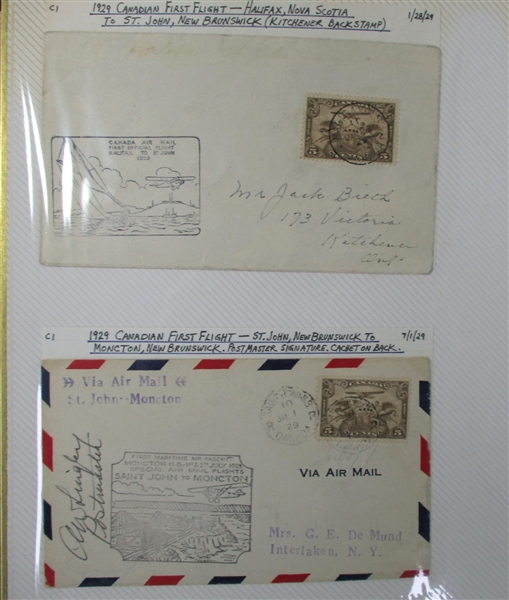 C1
1929 CANADIAN FIRST FLIGHT — HALIFAX, NOVA SCOTIA
TO ST. JOHN, NEW BRUNSWICK (KITCHENER BACKSTAMP)
1/28/29
CANADA AIR MAIL
FIRST OFFICIAL FLIGHT
HALIFAX TO ST JOHN
1929
5 5
Mr Jack Biech
173 Victoria
Kitchener
Ont.
C1
1929 CANADIAN FIRST FLIGHT — ST. JOHN, NEW BRUNSWICK TO
MONCTON, NEW BRUNSWICK. POSTMASTER SIGNATURE. CACHET ON BACK.
7/1/29
Via Air Mail
St. John-Moncton
10
29
5 5
Postmaster
FIRST MARITIME AIR PAGEANT
MONCTON N.B. 1ST JULY 1929
SPECIAL AIR MAIL FLIGHTS
SAINT JOHN TO MONCTON
VIA AIR MAIL
Mrs. G. E. De Mond
Interlaken, N. Y.